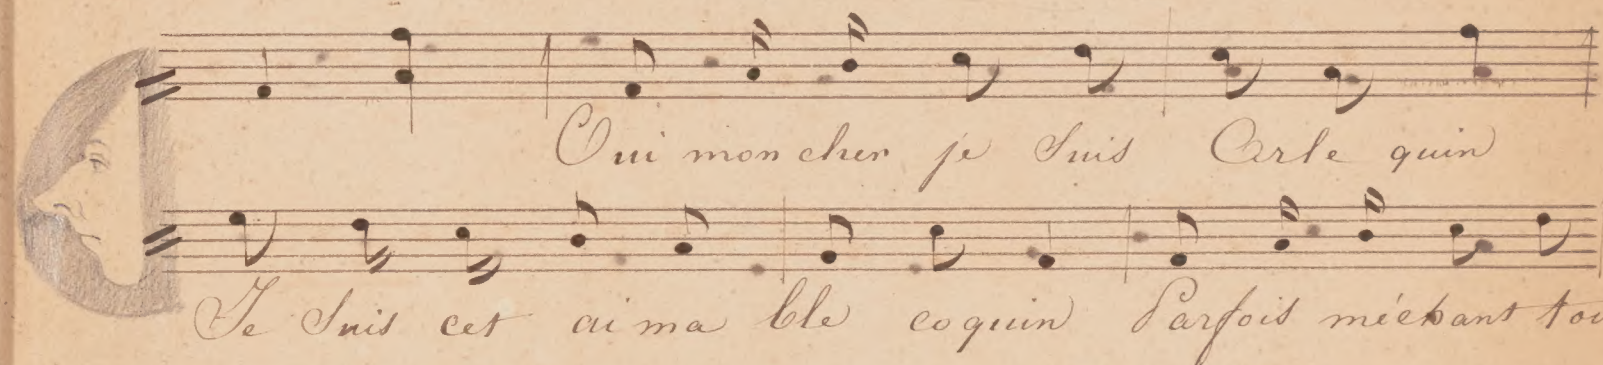 Oui mon cher je Suis Arle quin
Je Suis cet ai ma ble coquin Parfois méchant tou